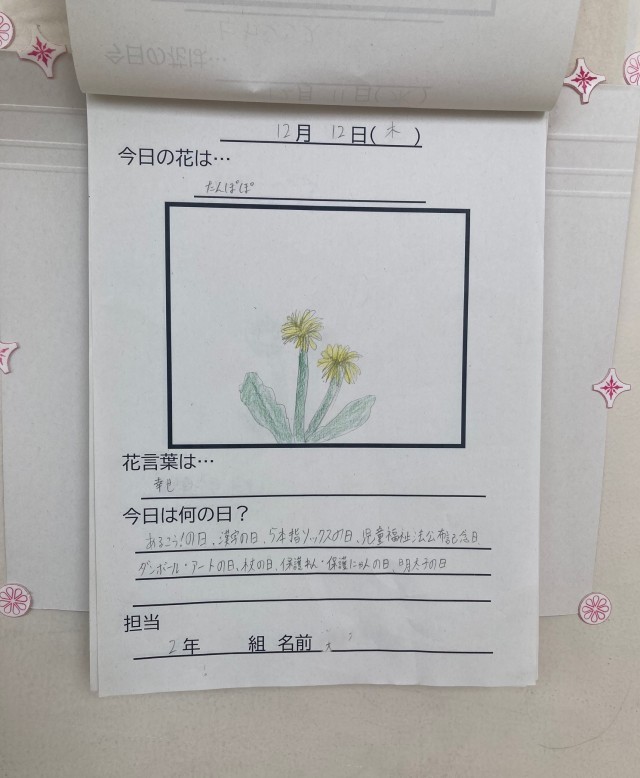 12月 12日(木)
今日の花は…
たんぽぽ
花言葉は…
幸せ
今日は何の日？
あるこう!の日、漢字の日、5本指ソックスの日、児童福祉法公布記念日
ダンボール・アートの日、杖の日、保護わん・保護にゃんの日、明太子の日
担当
2年 組 名前